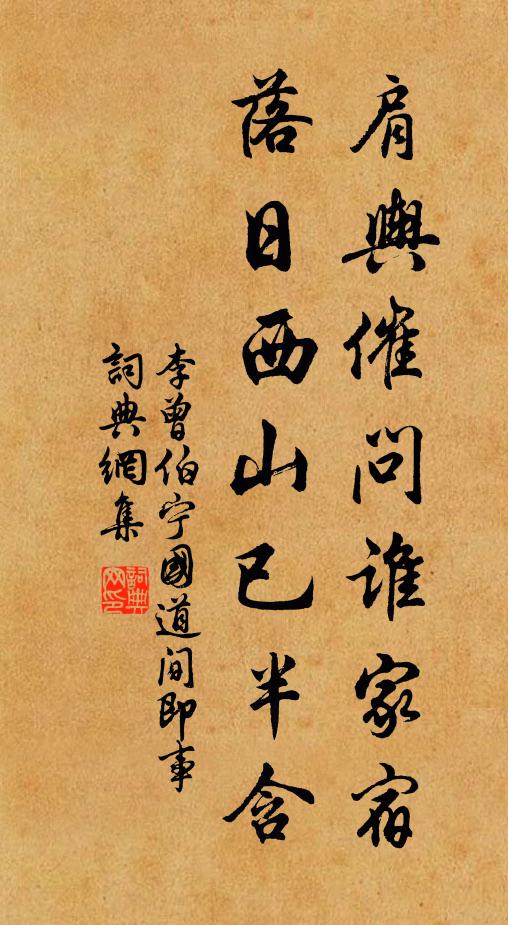 肩輿催問誰家宿
落日西山已半含
李曾伯宁國道間即事
詞典網集
詞典网印